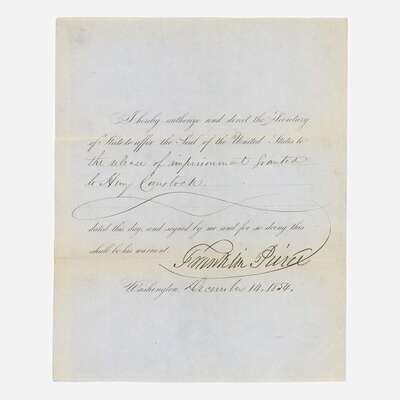 I hereby authorize and direct the Secretary
of State to affix the Seal of the United States to
the release of imprisonment granted
to Henry Comstock.
dated this day, and signed by me and for so doing this
shall be his warrant.
Franklin Pierce
Washington, December 14, 1854.